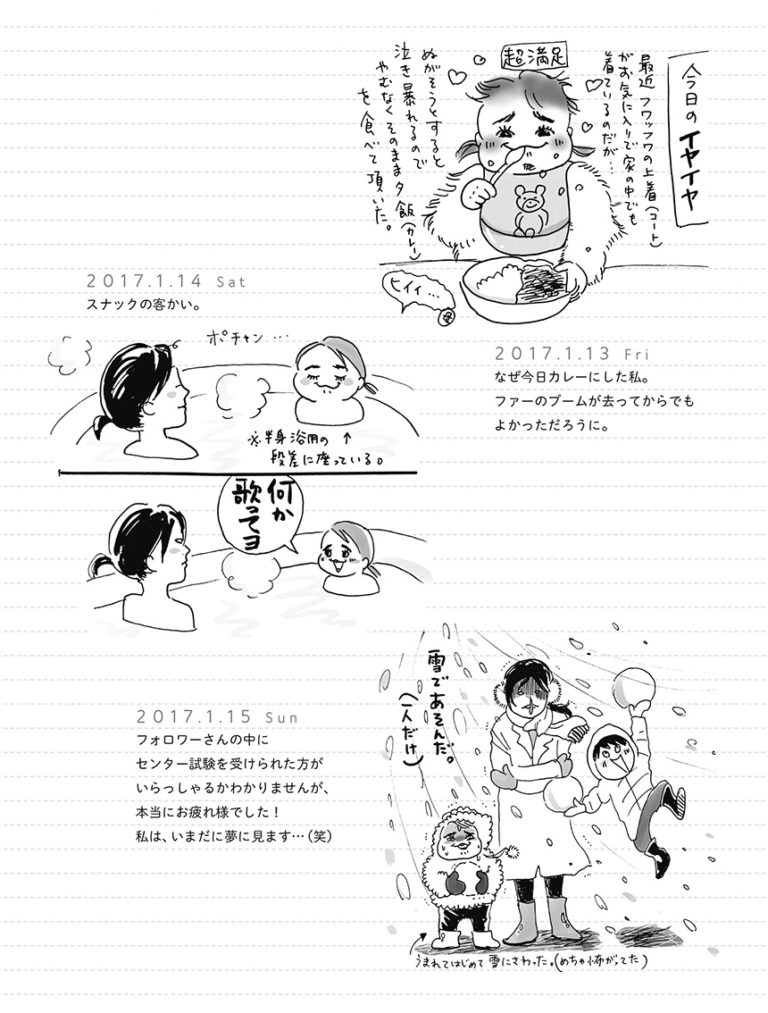 今日のイヤイヤ
最近フワッフワの上着(コート)
がお気に入りで家の中でも
着ているのだが…
超満足
ぬがそうとすると
泣き暴れるので
やむなくそのまま夕飯(カレー)
を食べて頂いた。
ヒイィ…
母
2017.1.13 Fri
なぜ今日カレーにした私。
ファーのブームが去ってからでも
よかっただろうに。
2017.1.14 Sat
スナックの客かい。
ポチャン…
※半身浴用の
段差に座っている。
↑
何か
歌ってヨ
2017.1.15 Sun
フォロワーさんの中に
センター試験を受けられた方が
いらっしゃるかわかりませんが、
本当にお疲れ様でした！
私は、いまだに夢に見ます…(笑)
雪であそんだ。
(一人だけ)
うまれてはじめて雪にさわった。(めちゃ怖がってた)